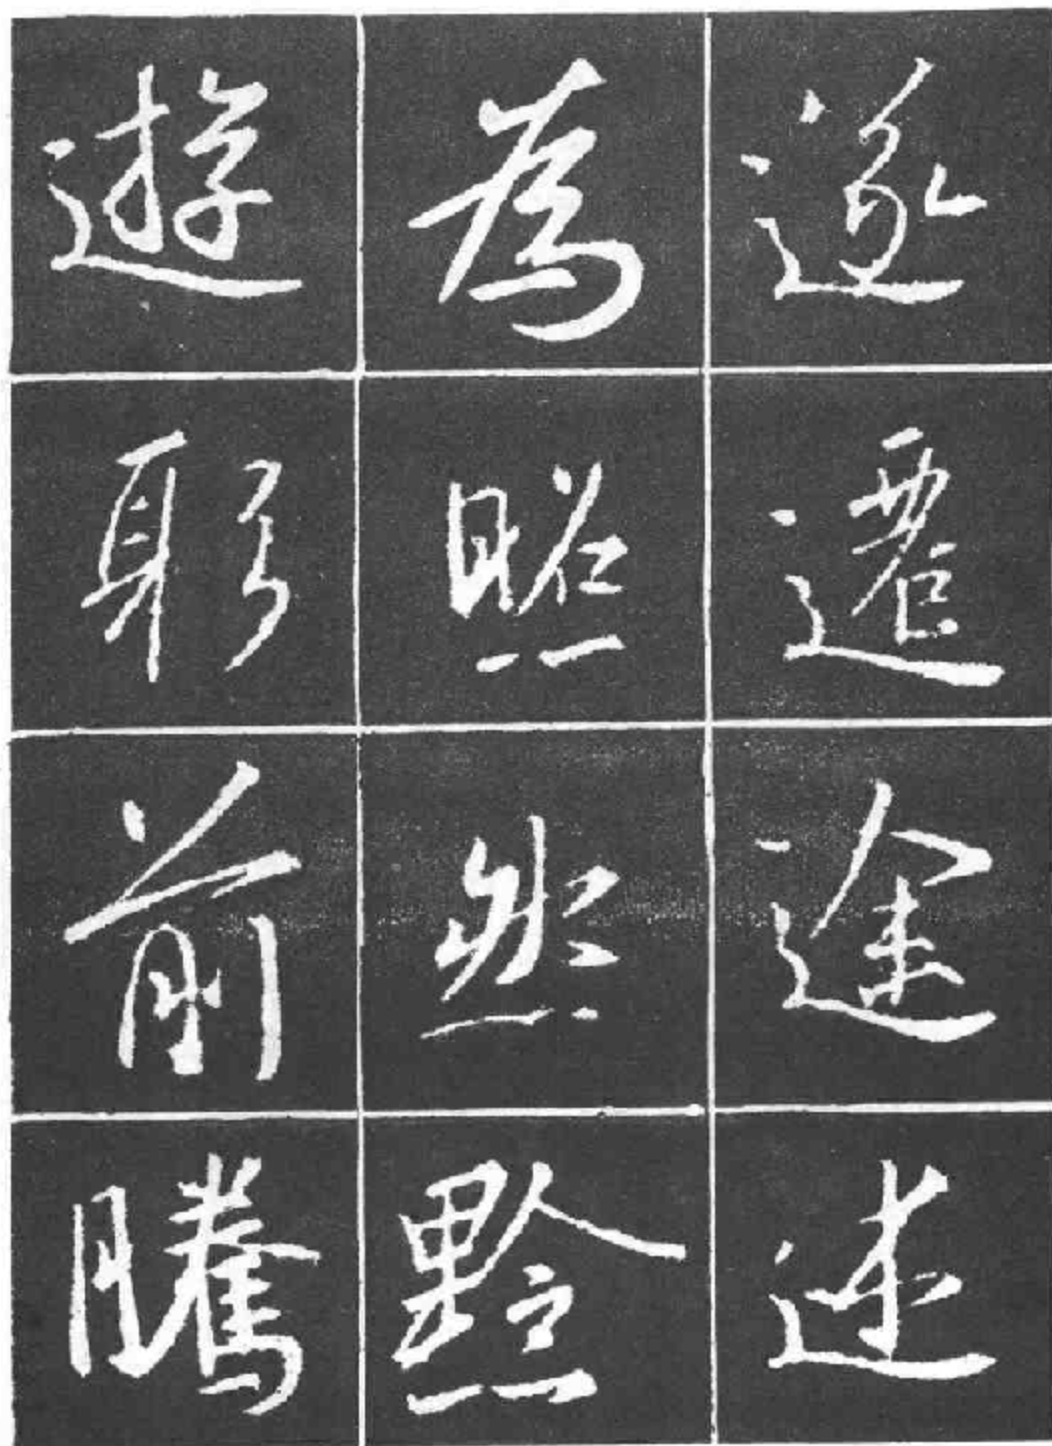 遂遷途述
為照然黔
遊躬前騰